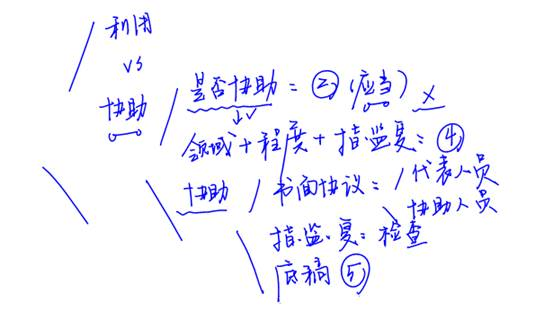 利用
vs
协助
是否协助 = ② (应当) ×
↓✓
领域 + 程度 + 指.监.复: ④
协助 / 书面协议: 代表人员
协助人员
指.监.复: 检查
底稿 ⑤